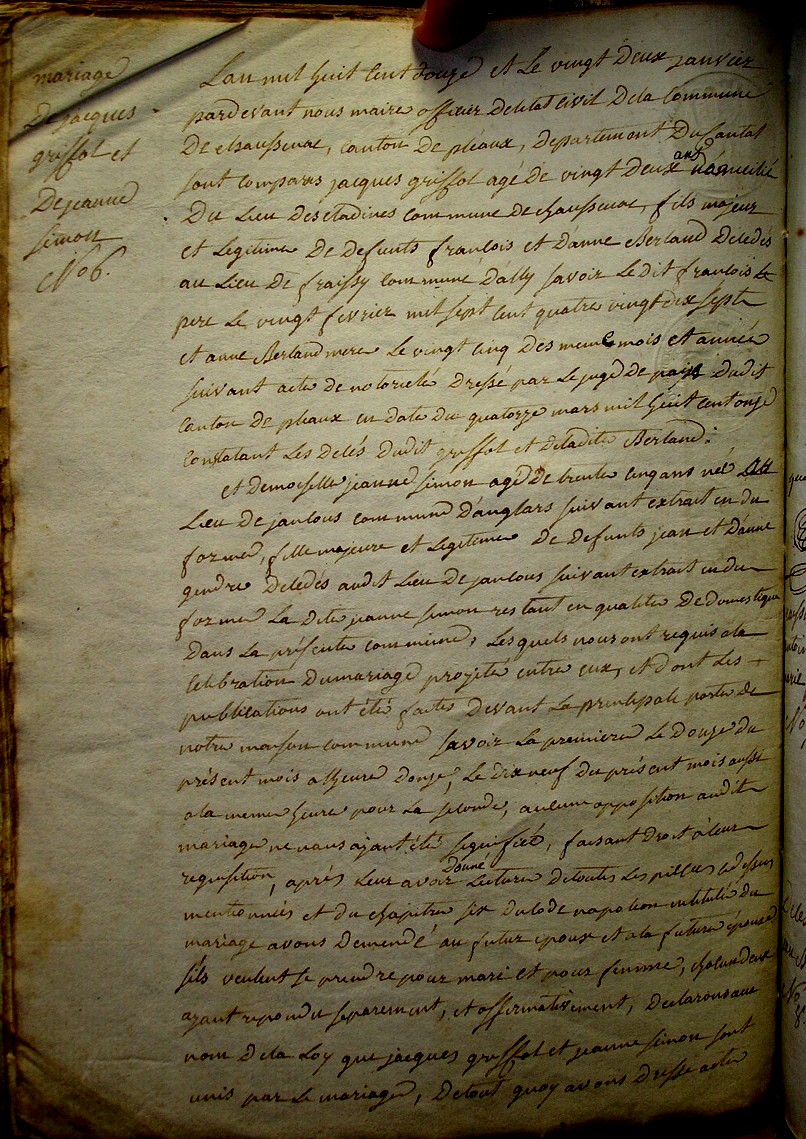 mariage
De jacques
griffol et
De jeanne
simon
No 6.
Lan mil huit cent douze et Le vingt Deux janvier
pardevant nous maire officier Deletat Civil Dela Commune
De chaussenac, canton De pleaux, Departement Du Cantal
sont comparus jacques griffol agé De vingt Deux ans
Du Lieu Des etadines Commune De chaussenac, fils majeur
et Legitime De Defunts francois et Danne Berland Deledés
au Lieu De fraissy Commune Dally savoir Le dit francois
pere Le vingt fevrier mil sept cent quatre vingt dix sept
et anne Berland mere Le vingt cinq Des meme mois et année
suivant acte de notorieté Dressé par Le juge De paix Dudit
Canton De pleaux en Date Du quatorze mars mil huit cent onze
Constatant Les Delés Dudit griffol et Deladite Berland.
et Demoiselle jeanne simon agé De trente cinq ans née au
Lieu De janlous commune Danglars suivant extrait en du
forme, fille majeure et Legitime De Defunts jean et Danne
gendre Deledés audit Lieu De janlous suivant extrait en du
forme La Dite jeanne simon restant en qualité De Domestique
Dans La présente commune, Lesquels nous ont requis ala
Celebration Du mariage projeté entre eux, et Dont Les
publications ont été faites Devant La principale porte De
notre maison commune savoir La premiere Le Douze Du
présent mois a lheure Donze, Le Dix neuf Du présent mois aussi
ala meme heure pour La seconde, aucune opposition audit
mariage ne nous ajant été signifiée, faisant Droit à Leur
requisition, aprés Leur avoir Donné Lecture De toutes Les pieces cidessus
mentionnées et Du chapitre six Du Code napoleon intitulé Du
mariage avons Demendé au futur epoux et ala future épouse
sils veulent se prendre pour mari et pour femme, chacun Deux
ayant repondu separement, et affirmativement, Declarons au
nom De la Loy que jacques griffol et jeanne simon sont
unis par Le mariage, De tout quoy avons Dressé acte